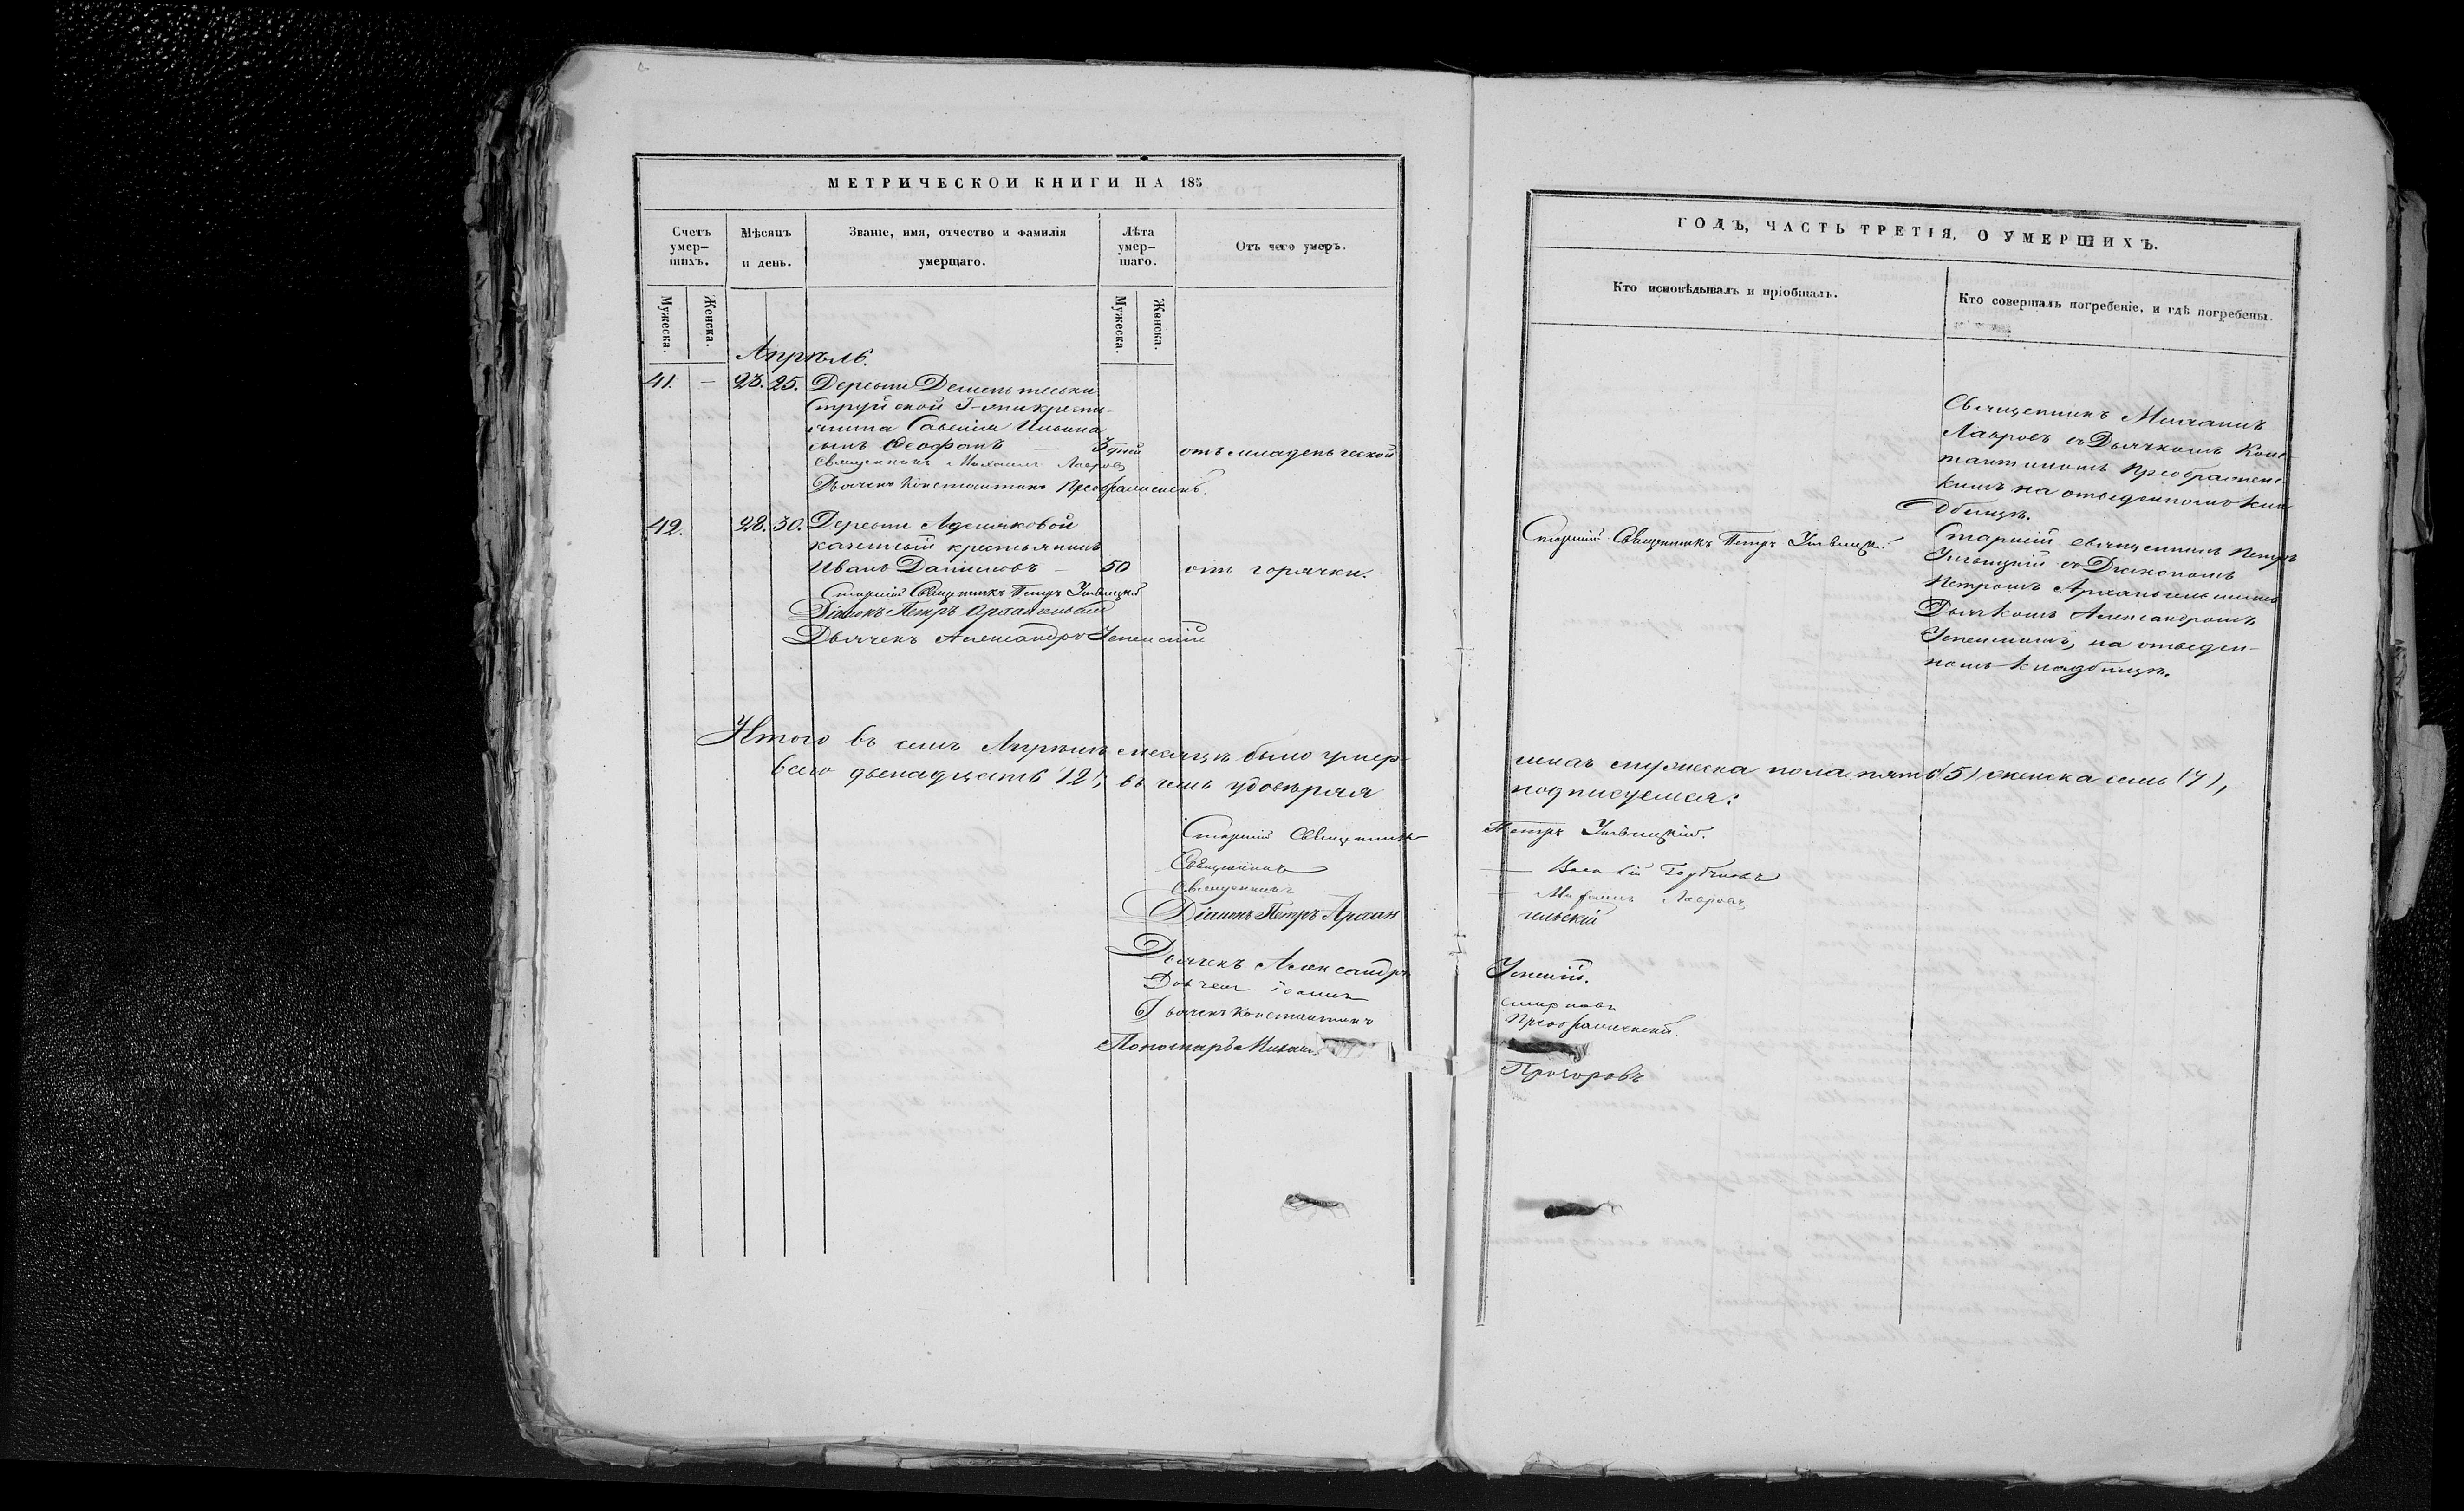 МЕТРИЧЕСКОЙ КНИГИ НА 185
Счетъ умер-
шихъ.
Мѣсяцъ
и день.
Званіе, имя, отчество и фамилія
умершаго.
Лѣта
умер-
шаго.
Отъ чего умеръ.
Мужеска.
Женска.
Мужеска.
Женска.
Апрѣль.
41. — 23. 25. Деревни
сынъ Ѳеофанъ — 3 дней отъ младенческой
Священникъ Михаилъ Лавровъ
Дьячекъ Константинъ Преображенскій.
42. 28. 30. Деревни
казенный крестьянинъ
Иванъ Даниловъ — 50 отъ горячки.
Старшій Священникъ Петръ
Діаконъ Петръ Архангельскій
Дьячекъ Александръ Успенскій
Итого въ семъ Апрѣлѣ месяцѣ было умер-
всего двенадцать 12, въ чемъ удостѣряя
Старшій Священникъ
Священникъ
Священникъ
Діаконъ Петръ Архан
Дьячекъ Александръ
Дьячекъ Іоаннъ
Дьячекъ Константинъ
Пономарь Михаилъ
ГОДЪ, ЧАСТЬ ТРЕТІЯ, О УМЕРШИХЪ.
Кто исповѣдывалъ и пріобщалъ.
Кто совершалъ погребеніе, и гдѣ погребены.
Священникъ Михаилъ
Лавровъ съ Дьячкомъ Конс
тантиномъ Преображенс
кимъ на отведенномъ кла
дбищѣ.
Старшій Священникъ Петръ
Старшій священникъ Петръ
съ Діакономъ
Петромъ Архангельскимъ
Дьячкомъ Александромъ
Успенскимъ, на отведен-
номъ кладбищѣ.
шихъ мужеска пола пять (5) женска семь (7),
подписуемся:
Петръ
Василій
Михаилъ Лавровъ
гельскій
Успенскій.
Смирновъ
Преображенскій.
Прохоровъ